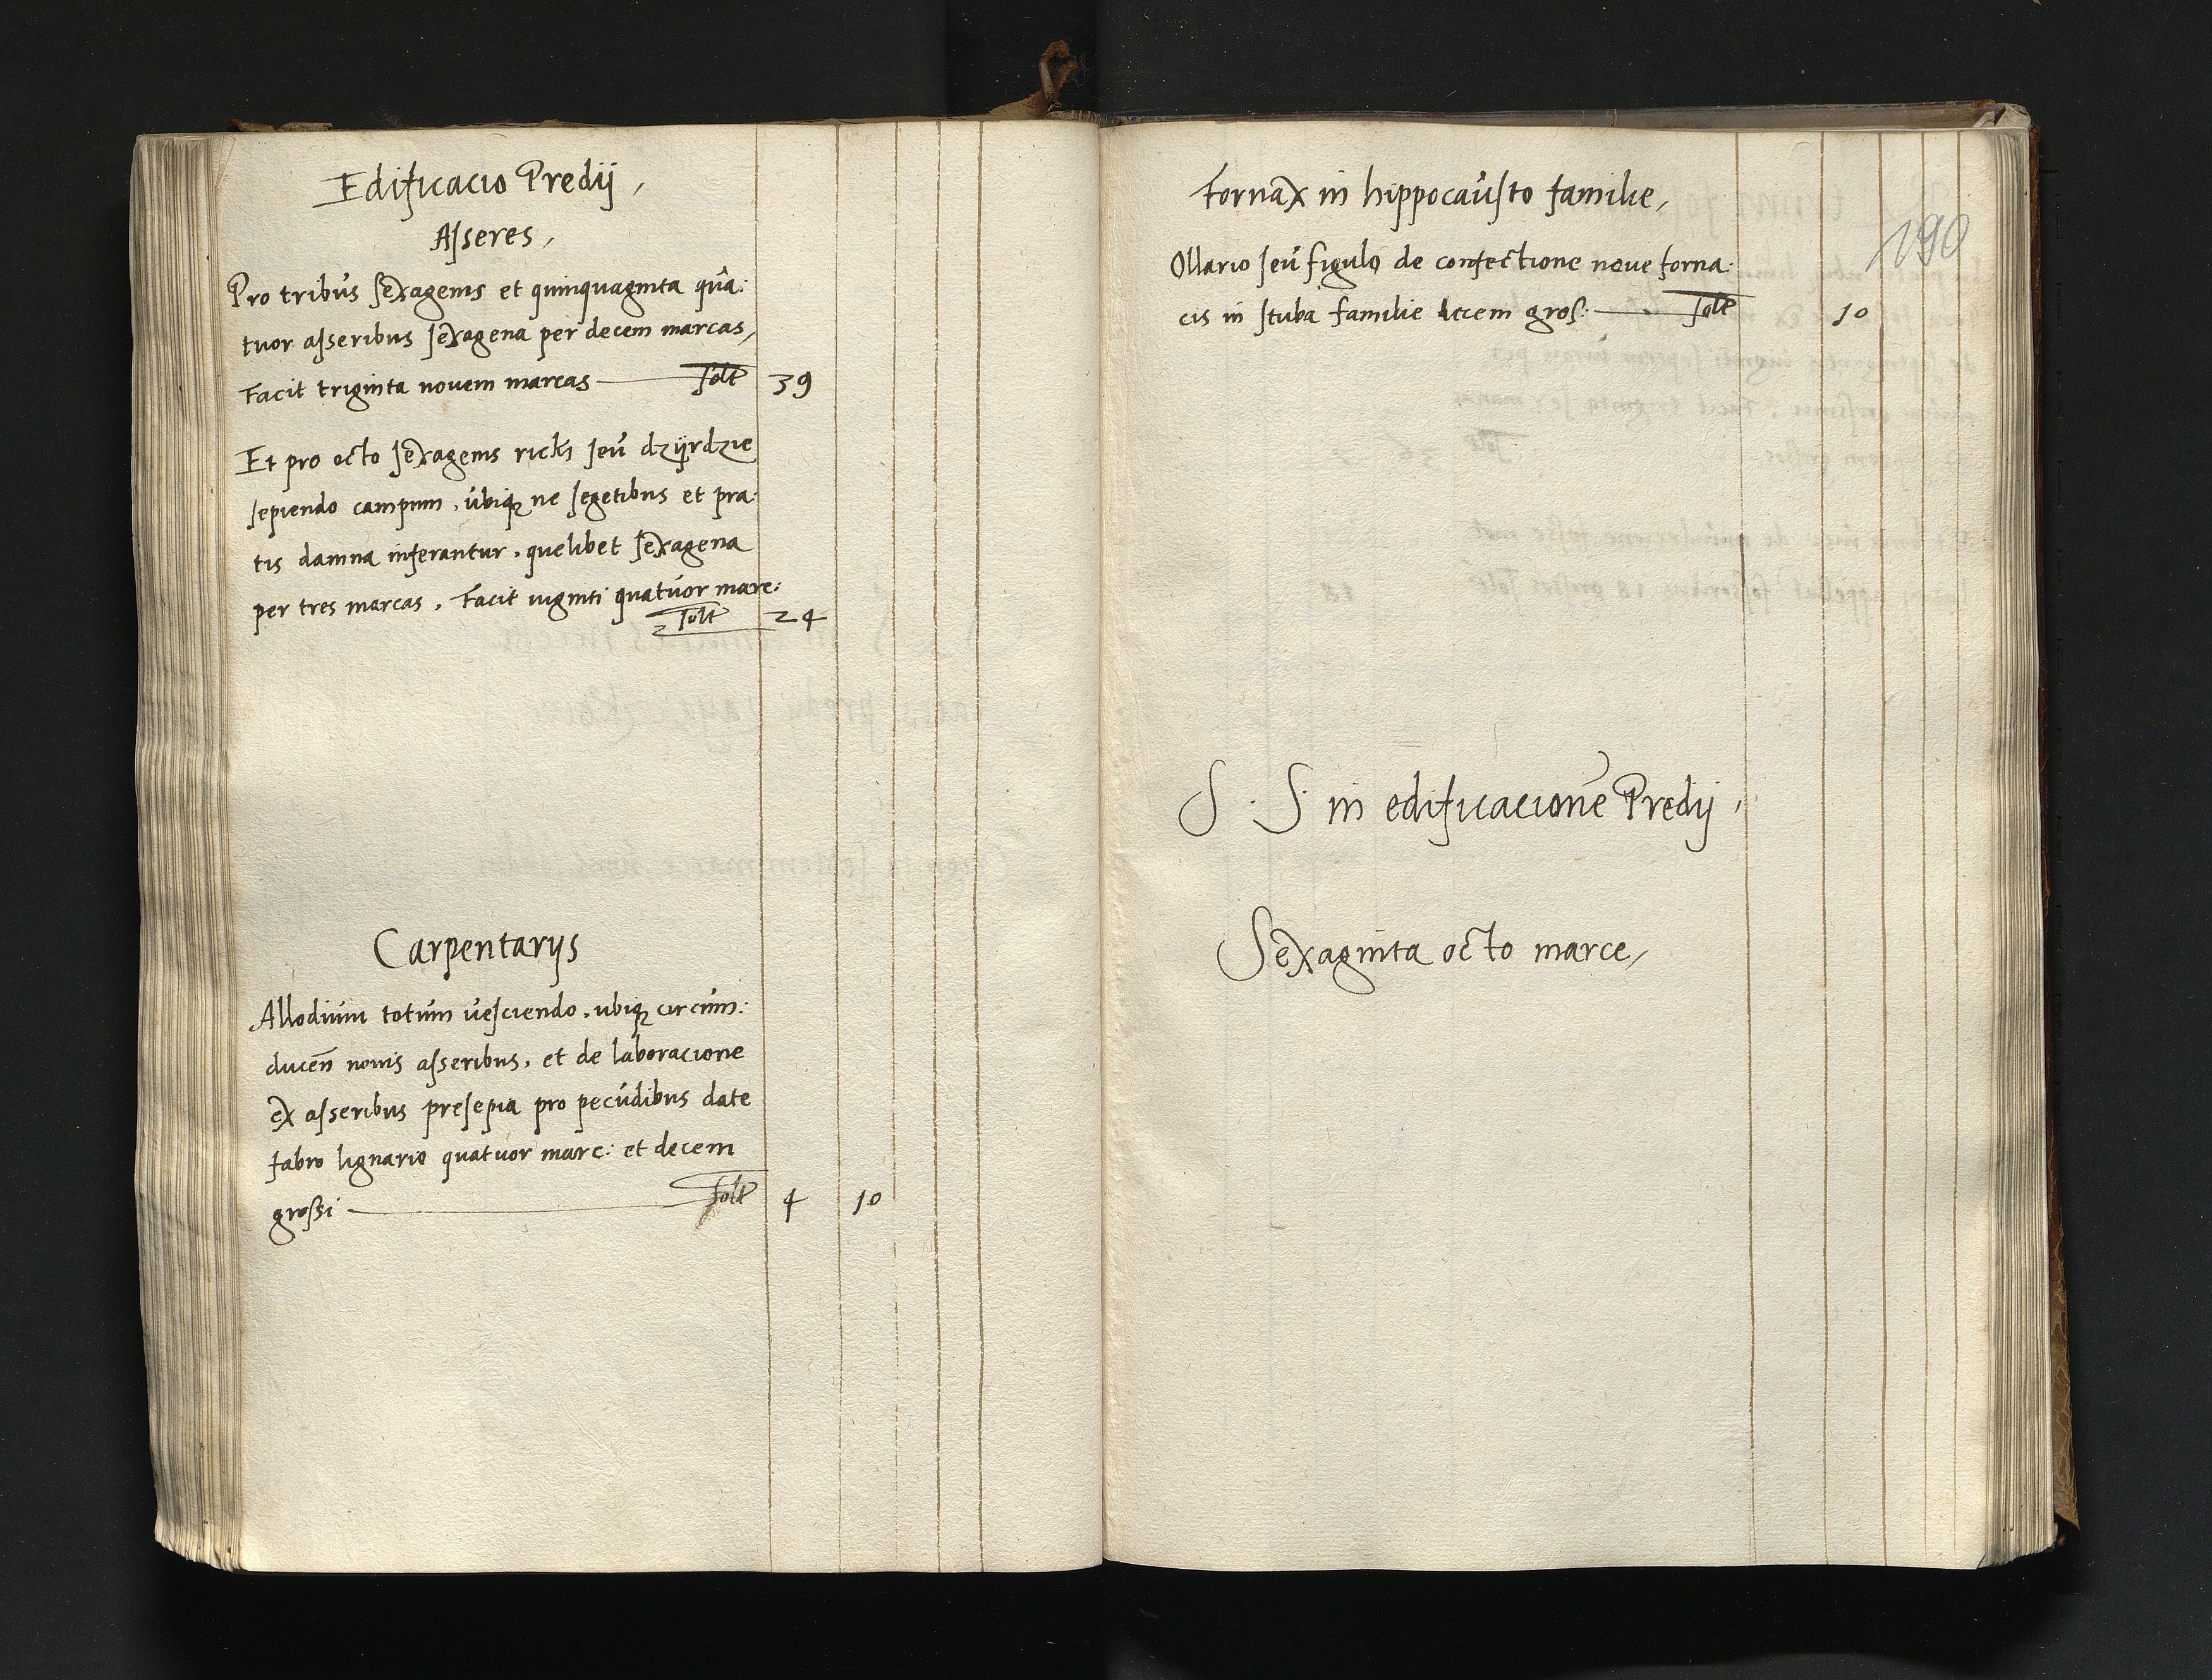 Edificacio Predij,
Asseres,
Pro tribus sexagenis et quinquaginta qua:
tuor asseribus sexagena per decem marcas,
Facit triginta novem marcas — Solt 39
Et pro octo sexagenis richi seu dzÿrdzie
sepiendo campum, ubiq; ne segetibus et pra:
tis damna inferantur, quelibet sexagena
per tres marcas, Facit viginti quatuor marc:
Solt 24
Carpentarijs
Allodium totum vesciendo, ubiq; circum:
ducen̄ novis asseribus, et de laboracione
ex asseribus presepia pro pecudibus date
fabro lignario quatuor marc: et decem
grossi — Solt 4 10
Fornax in hippocausto familie,
190
Ollario seu figulo de confectione nove forna:
cis in stuba familie decem gros: — Solt 10
S. S. in edificacione Predij,
Sexaginta octo marce,